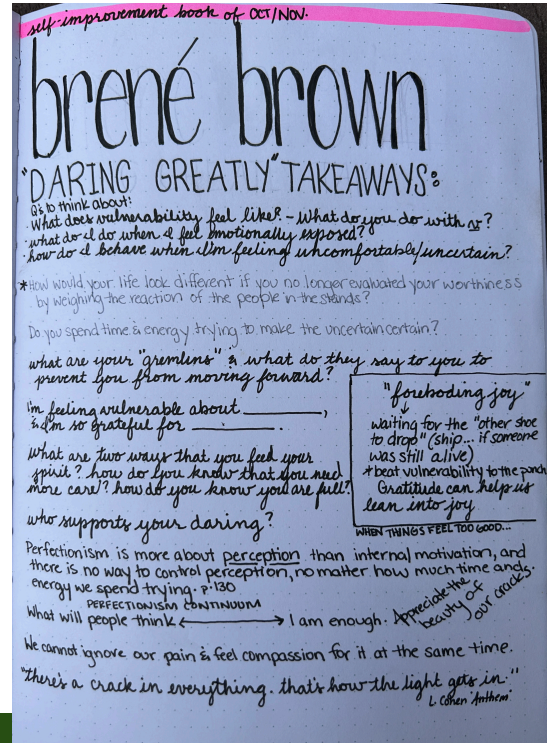 self-improvement book of OCT/NOV.
brené brown
"DARING GREATLY" TAKEAWAYS:
Q's to think about:
· What does vulnerability feel like? - What do you do with it?
· what do I do when I feel emotionally exposed?
· how do I behave when I'm feeling uncomfortable/uncertain?
*How would your life look different if you no longer evaluated your worthiness
by weighing the reaction of the people in the stands?
Do you spend time & energy trying to make the uncertain certain?
what are your "gremlins" & what do they say to you to
prevent you from moving forward?
i'm feeling vulnerable about ________,
& I'm so grateful for ________.
what are two ways that you feed your
spirit? how do you know that you need
more care? how do you know you are full?
who supports your daring?
"foreboding joy"
↓
waiting for the "other shoe
to drop" (ship... if someone
was still alive)
*beat vulnerability to the punch
Gratitude can help us
lean into joy
WHEN THINGS FEEL TOO GOOD...
Perfectionism is more about perception than internal motivation, and
there is no way to control perception, no matter how much time and
energy we spend trying. p.130
PERFECTIONISM CONTINUUM
What will people think ⟷ I am enough.
Appreciate the
beauty of
our cracks.
We cannot ignore our pain & feel compassion for it at the same time.
"there's a crack in everything. that's how the light gets in."
L. Cohen "Anthem"